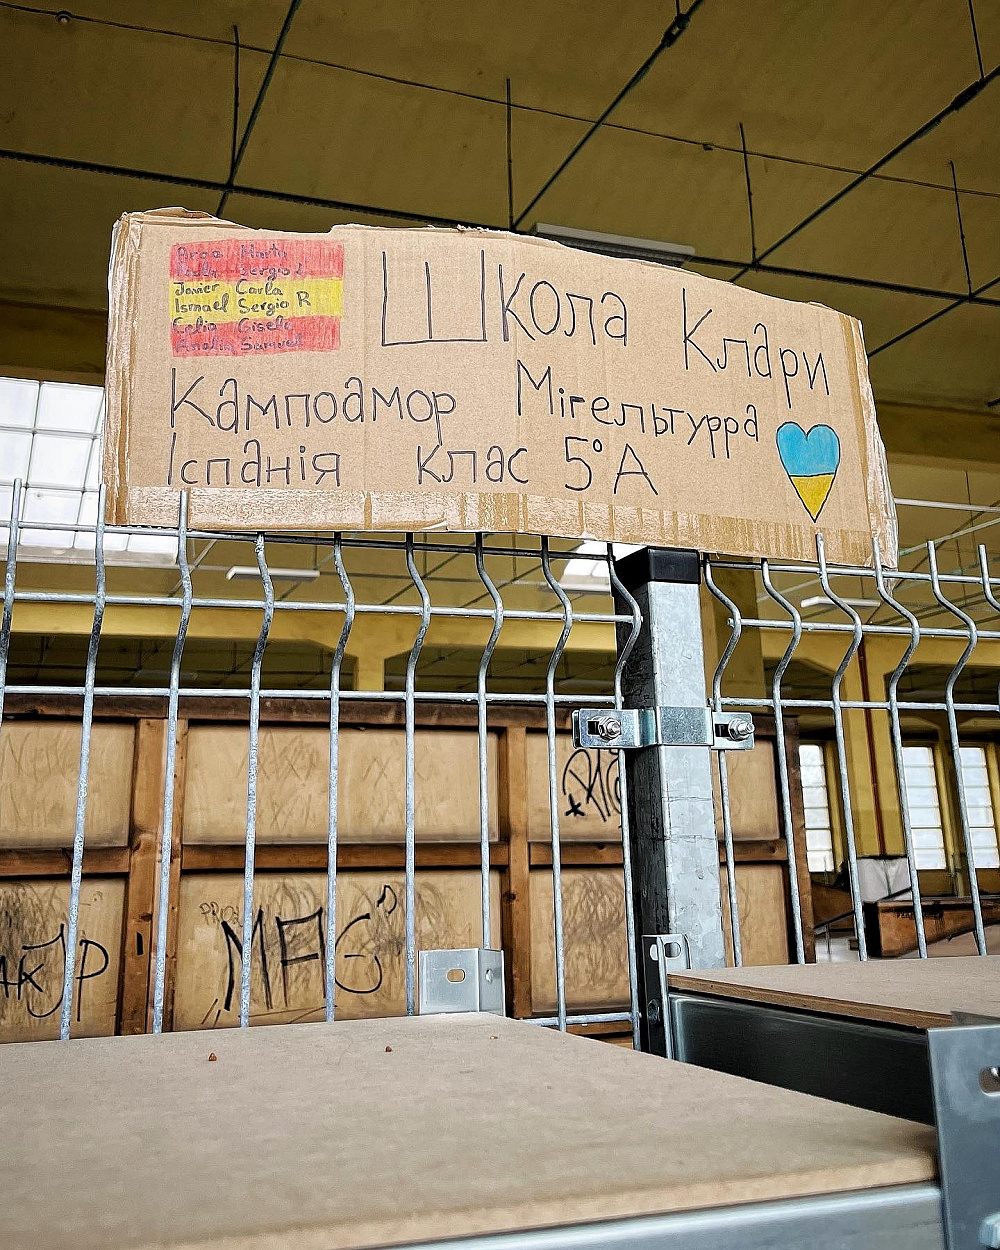 Marta
Sergio L
Javier Carla
Ismael Sergio R
Celia Gisela
Analía Samuel
Школа Клари
Кампоамор Мігельтурра
Іспанія клас 5º A